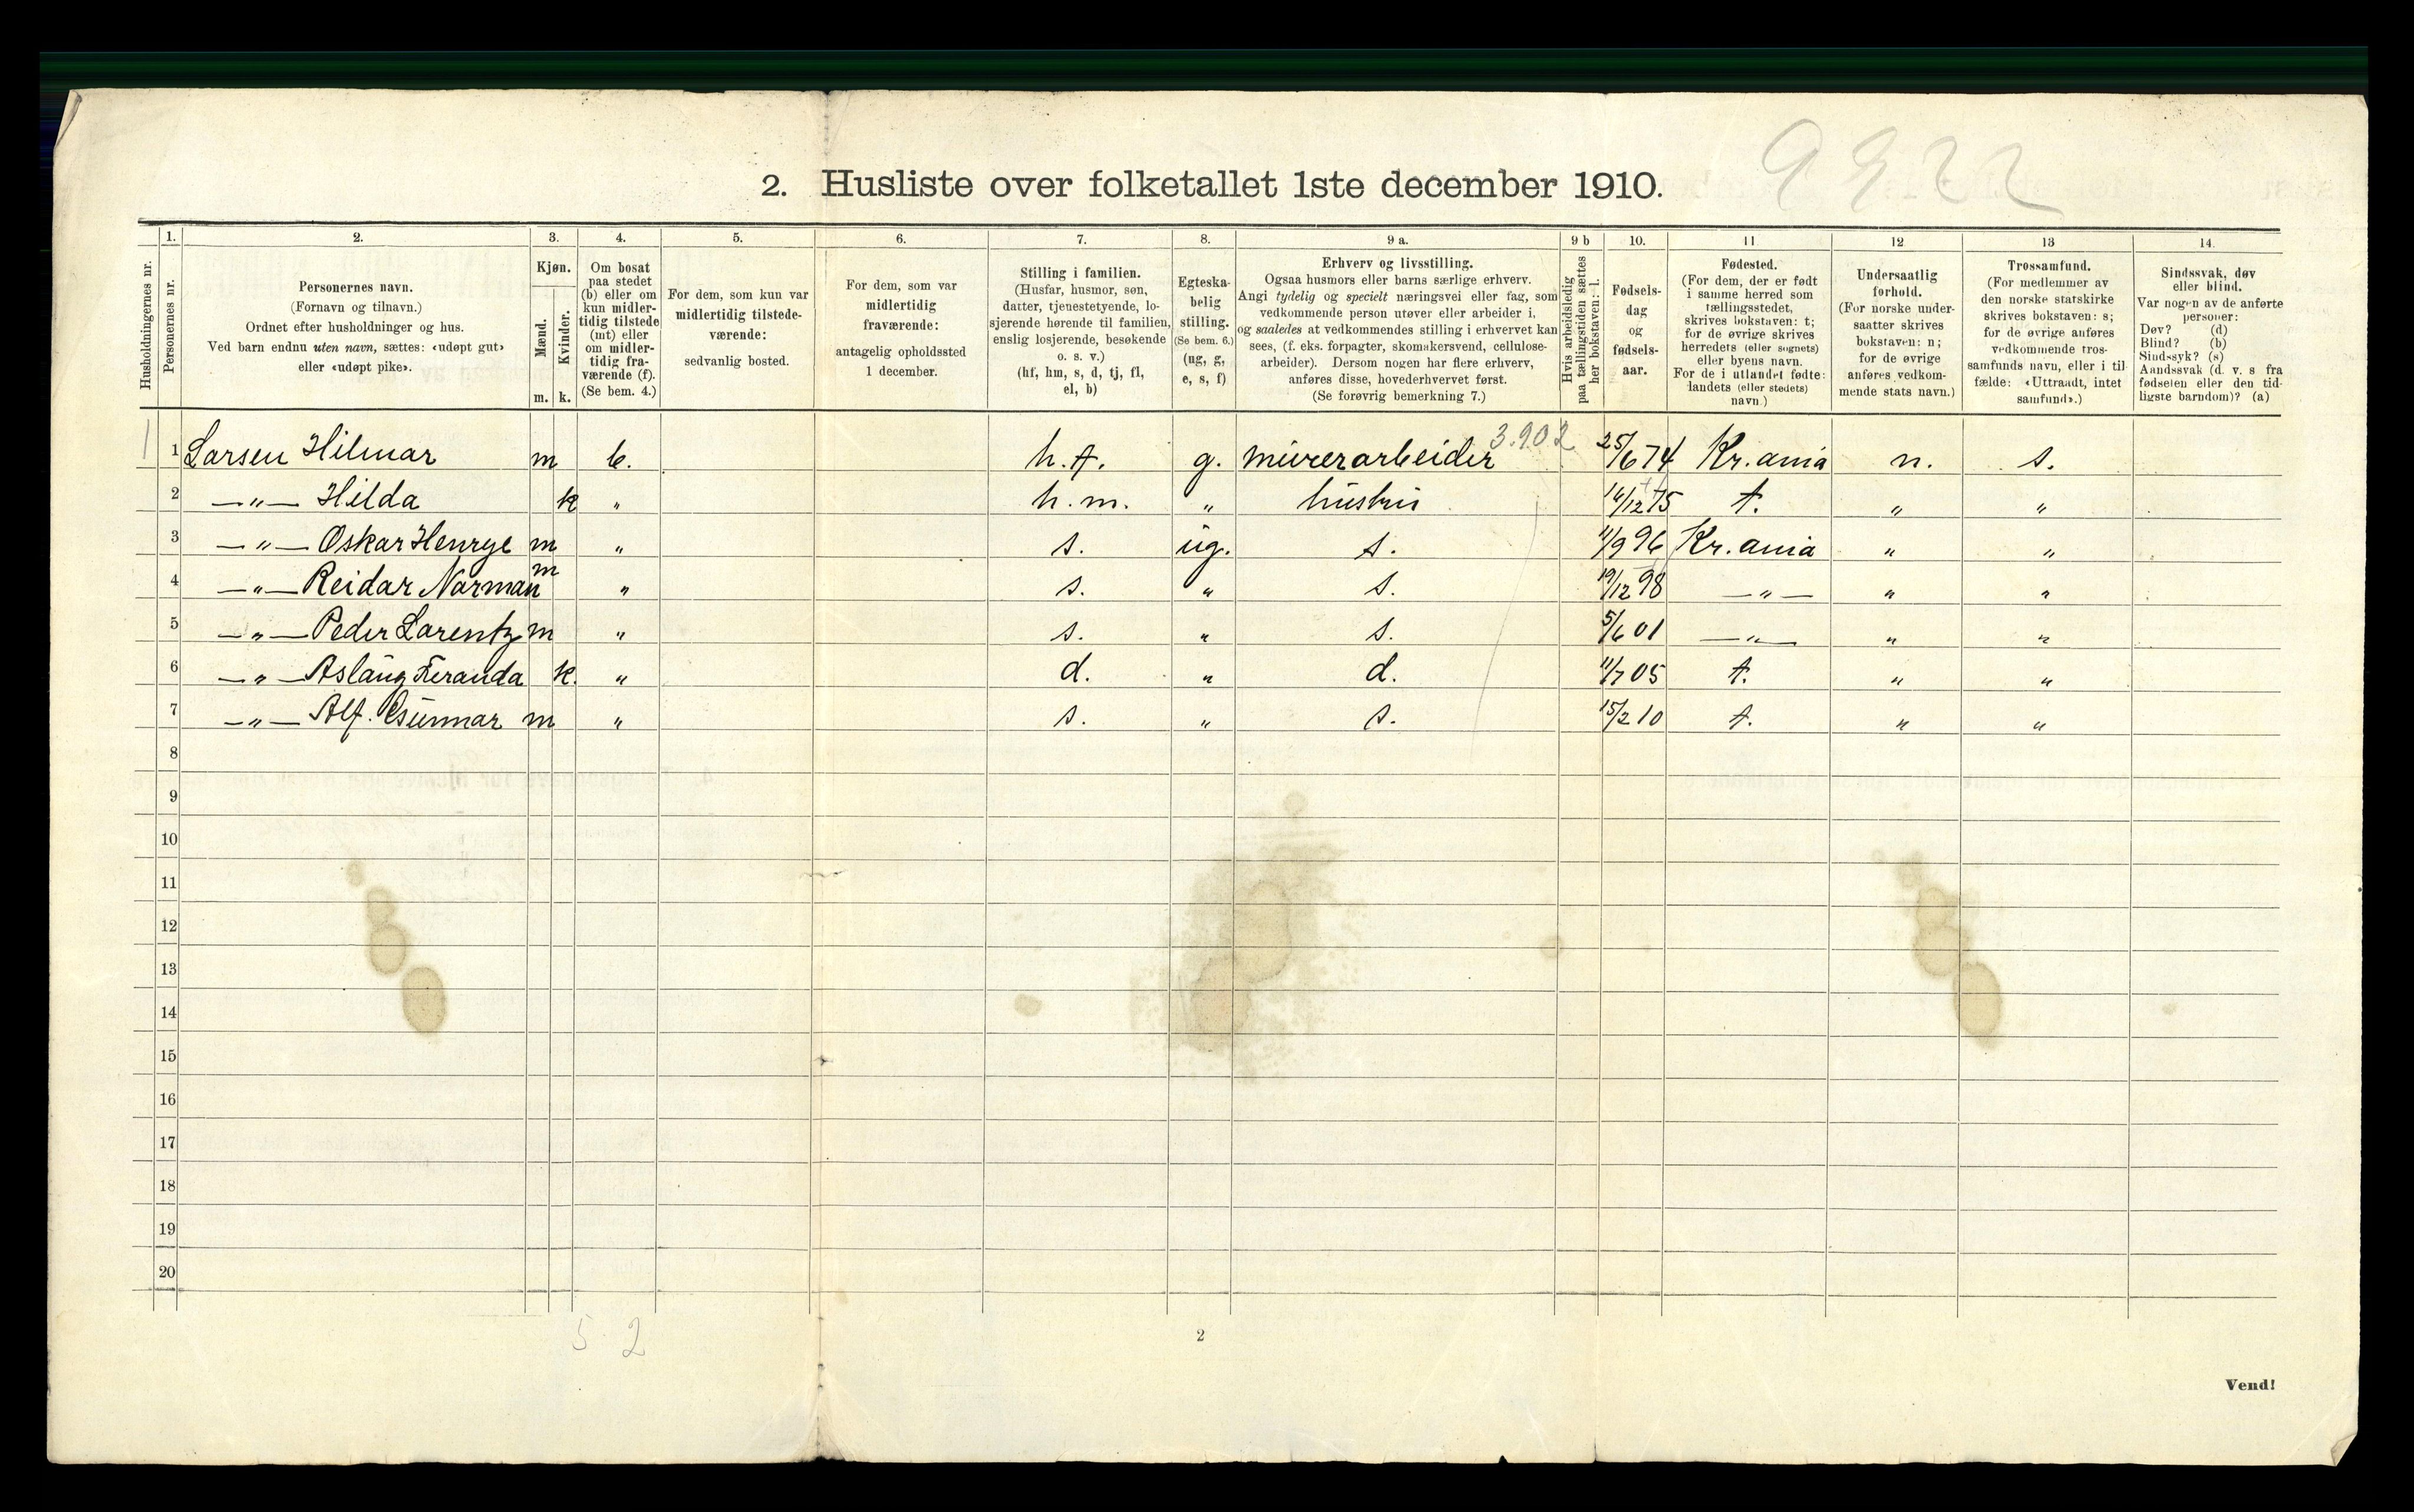 9922
2. Husliste over folketallet 1ste december 1910.
1. 2. 3. 4. 5. 6. 7. 8. 9 a. 9 b 10. 11 12 13 14.
Husholdningernes nr.
Personernes nr.
Personernes navn.
(Fornavn og tilnavn.)
Ordnet efter husholdninger og hus.
Ved barn endnu uten navn, sættes: «udøpt gut»
eller «udøpt pike».
Kjøn.
Mænd.
Kvinder.
m. k.
Om bosat
paa stedet
(b) eller om
kun midler-
tidig tilstede
(mt) eller
om midler-
tidig fra-
værende (f).
(Se bem. 4.)
For dem, som kun var
midlertidig tilstede-
værende:
sedvanlig bosted.
For dem, som var
midlertidig
fraværende:
antagelig opholdssted
1 december.
Stilling i familien.
(Husfar, husmor, søn,
datter, tjenestetyende, lo-
sjerende hørende til familien,
enslig losjerende, besøkende
o. s. v.)
(hf, hm, s, d, tj, fl,
el, b)
Egteska-
belig
stilling.
(Se bem. 6.)
(ug, g,
e, s, f)
Erhverv og livsstilling.
Ogsaa husmors eller barns særlige erhverv.
Angi tydelig og specielt næringsvei eller fag, som
vedkommende person utøver eller arbeider i,
og saaledes at vedkommendes stilling i erhvervet kan
sees, (f. eks. forpagter, skomakersvend, cellulose-
arbeider). Dersom nogen har flere erhverv,
anføres disse, hovederhvervet først.
(Se forøvrig bemerkning 7.)
Hvis arbeidsledig
paa tællingstiden sættes
her bokstaven: l.
Fødsels-
dag
og
fødsels-
aar.
Fødested.
(For dem, der er født
i samme herred som
tællingsstedet,
skrives bokstaven: t;
for de øvrige skrives
herredets (eller sognets)
eller byens navn.
For de i utlandet fødte:
landets (eller stedets)
navn.)
Undersaatlig
forhold.
(For norske under-
saatter skrives
bokstaven: n;
for de øvrige
anføres vedkom-
mende stats navn.)
Trossamfund.
(For medlemmer av
den norske statskirke
skrives bokstaven: s;
for de øvrige anføres
vedkommende tros-
samfunds navn, eller i til-
fælde: «Uttraadt, intet
samfund».)
Sindssvak, døv
eller blind.
Var nogen av de anførte
personer:
Døv? (d)
Blind? (b)
Sindssyk? (s)
Aandssvak (d. v. s fra
fødselen eller den tid-
ligste barndom)? (a)
1 1 Larsen Hilmar m b. h.f. g. murerarbeider 3.902 25/6 74 Kr.ania n. s.
2 —"— Hilda k " h.m. " hustru 14/12 75 t. " "
3 —"— Oskar Henrye m " s. ug. s. 11/9 96 Kr.ania " "
4 —"— Reidar Norman m " s. " s. 19/12 98 —"— " "
5 —"— Peder Lorentz m " s. " s. 5/6 01 —"— " "
6 —"— Aslaug Feranda k. " d. " d. 11/7 05 t. " "
7 —"— Alf. Gunnar m " s. " s. 15/2 10 t. " "
8
9
10
11
12
13
14
15
16
17
18
19
20
5 2
2
Vend!